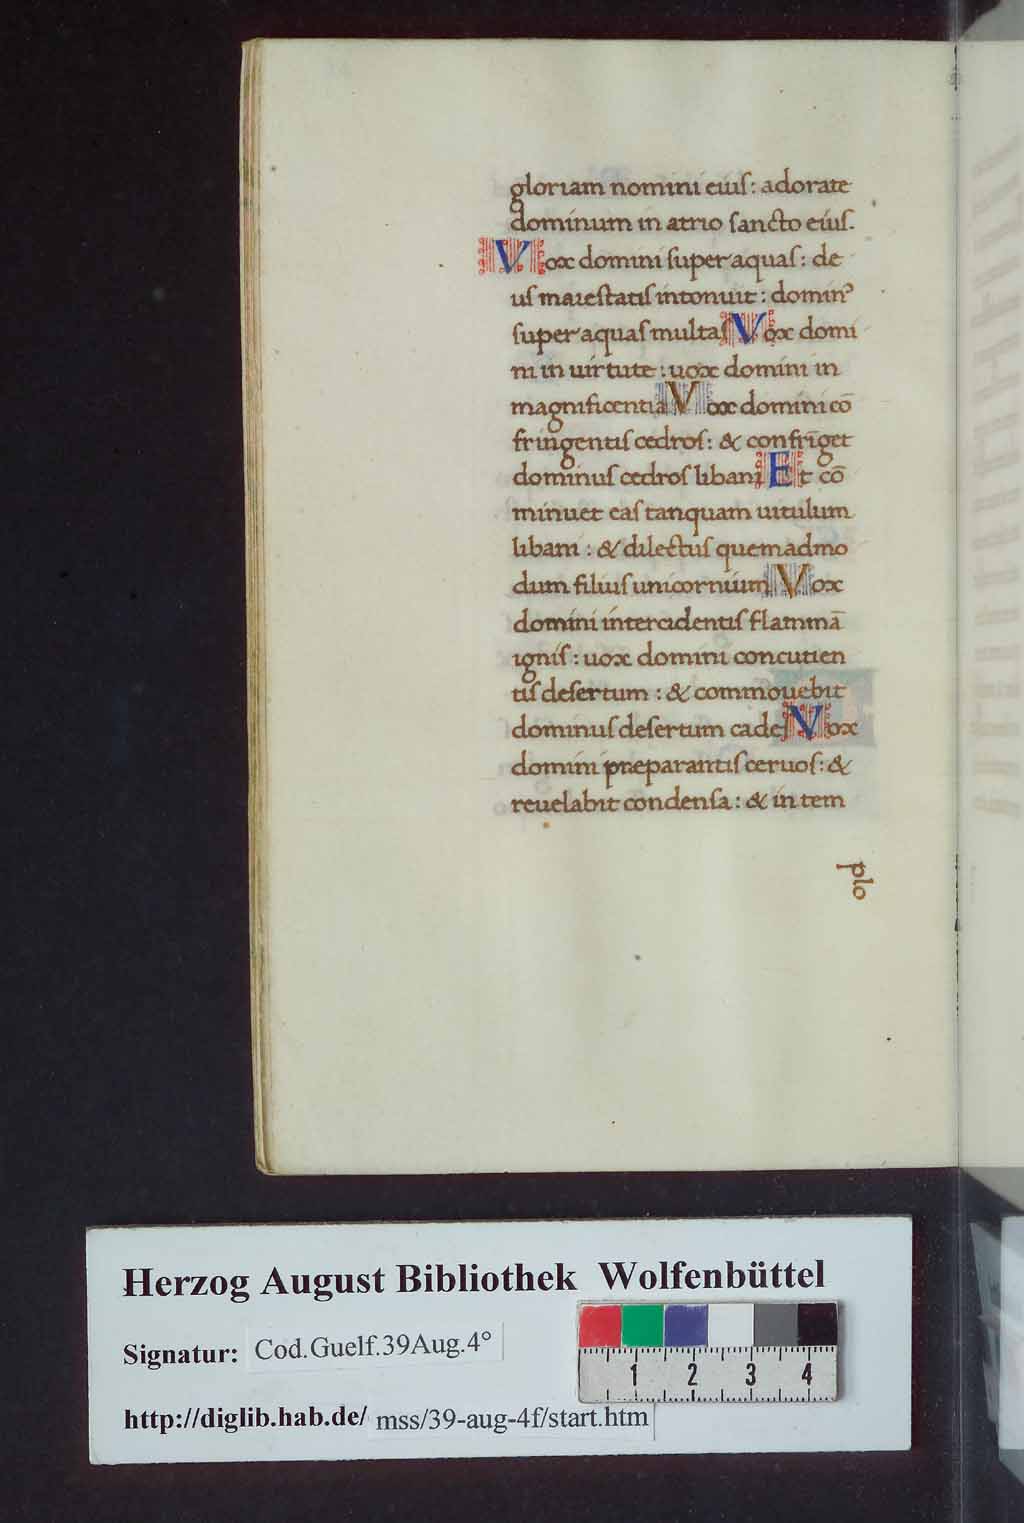 gloriam nomini eiuſ : adorate
dominum in atrio ſancto eiuſ.
Vox domini ſuper aquaſ : de
uſ maieſtatiſ intonuit : dominꝰ
ſuper aquaſ multaſ Vox domi
ni in uirtute : uox domini in
magnificentia Vox domini cō
fringentiſ cedroſ : & confringet
dominuſ cedroſ libani Et cō
minuet eaſ tanquam uitulum
libani : & dilectuſ quemadmo
dum filiuſ unicornium Vox
domini intercidentiſ flammā
igniſ : uox domini concutien
tiſ deſertum : & commouebit
dominuſ deſertum cadeſ Vox
domini preparantiſ ceruoſ : &
reuelabit condenſa : & in tem
plo
Herzog August Bibliothek Wolfenbüttel
Signatur: Cod.Guelf.39Aug.4°
1 2 3 4
http://diglib.hab.de/ mss/39-aug-4f/start.htm